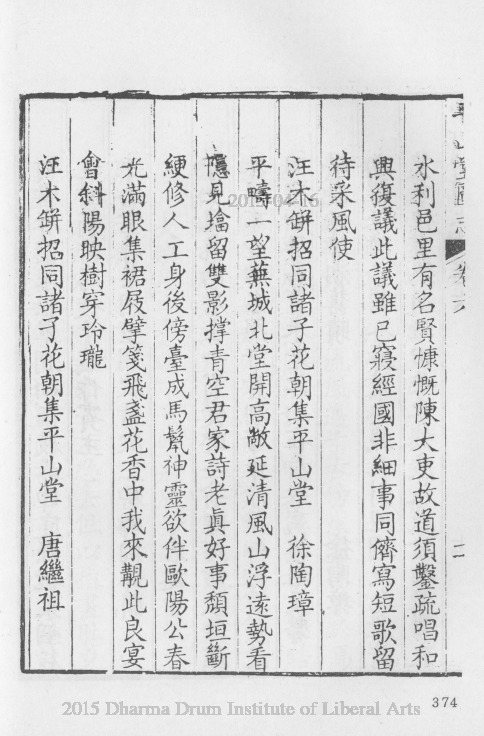 水利邑里有名賢慷慨陳大吏故道須鑿疏唱和
興復議此議雖已寢經國非細事同儕寫短歌留
待采風使
汪木缾招同諸子花朝集平山堂　徐陶璋
平疇一望蕪城北堂開高敞延清風山浮遠勢看
隱見墖留雙影撐青空君家詩老眞好事頹垣斷
綆修人工身後傍臺成馬鬣神靈欲伴歐陽公春
光滿眼集裙屐擘箋飛盞花香中我來覩此良宴
會斜陽映樹穿玲瓏
汪木缾招同諸子花朝集平山堂　唐繼祖
二
374
2015 Dharma Drum Institute of Liberal Arts